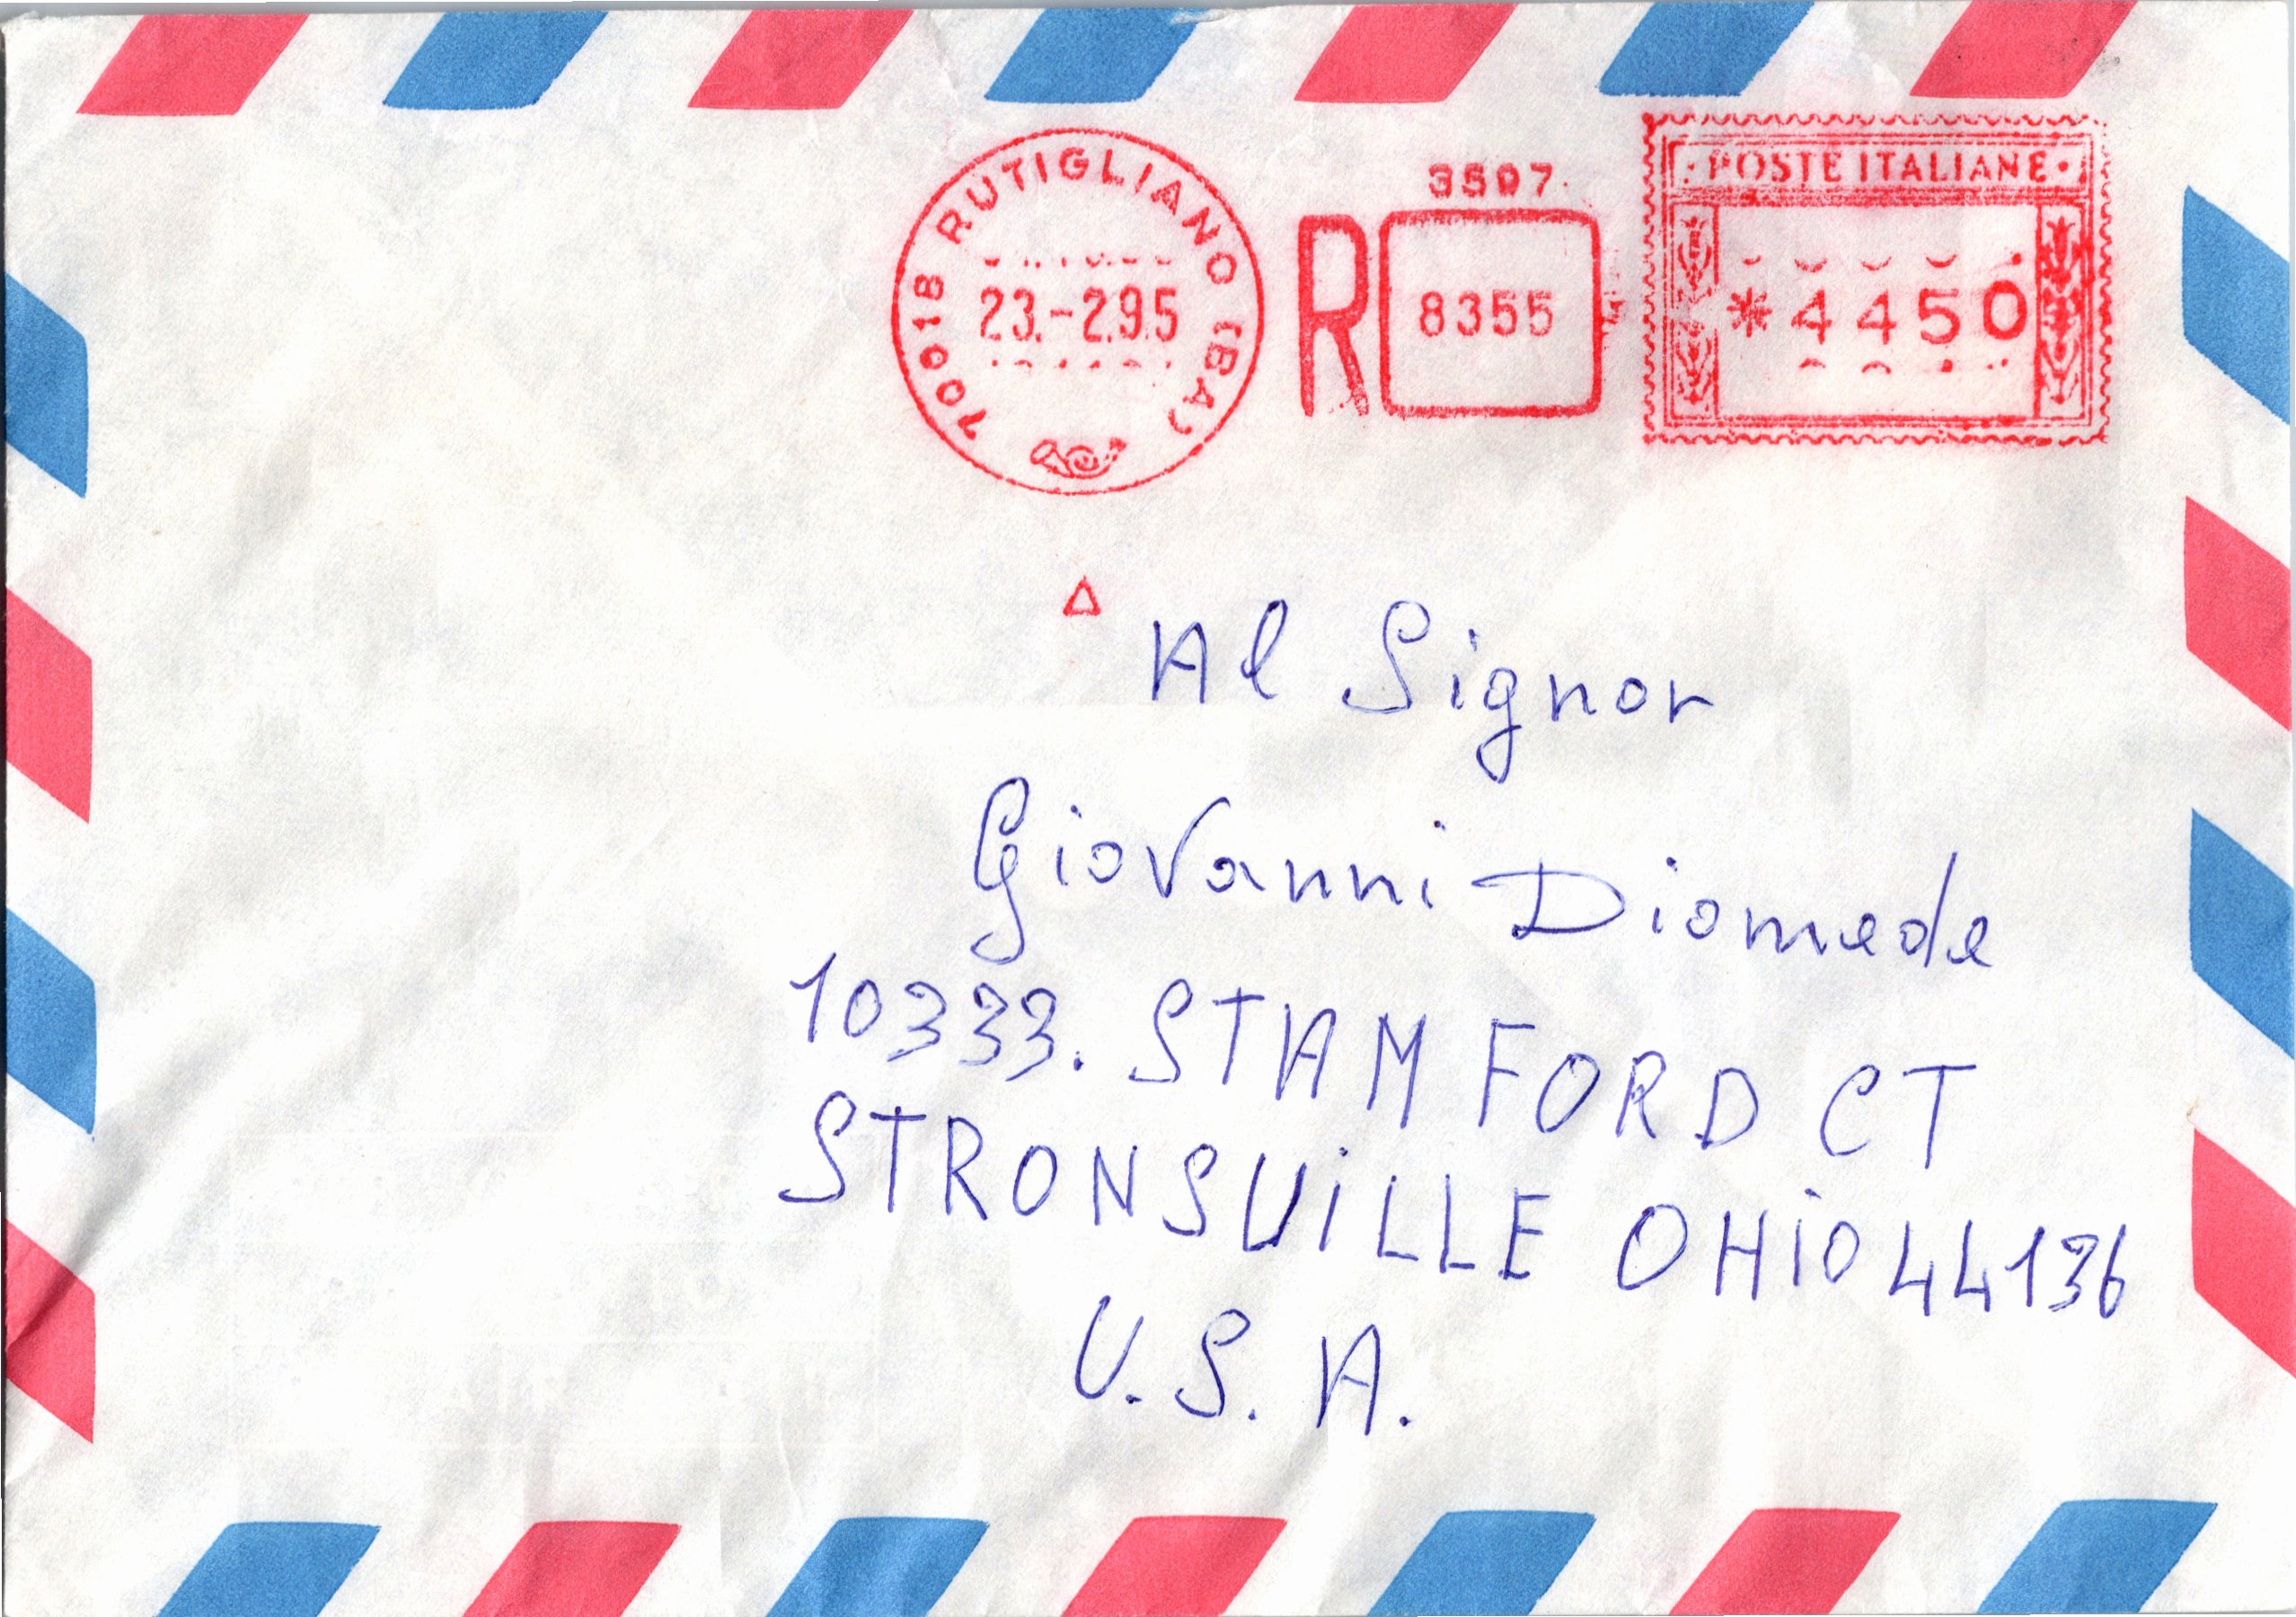 70018 RUTIGLIANO (BA)
23.-2.95
3507
R 8355
· POSTE ITALIANE ·
*4450
Al Signor
Giovanni Diomede
10333. STAMFORD CT
STRONSVILLE OHIO 44136
U.S.A.